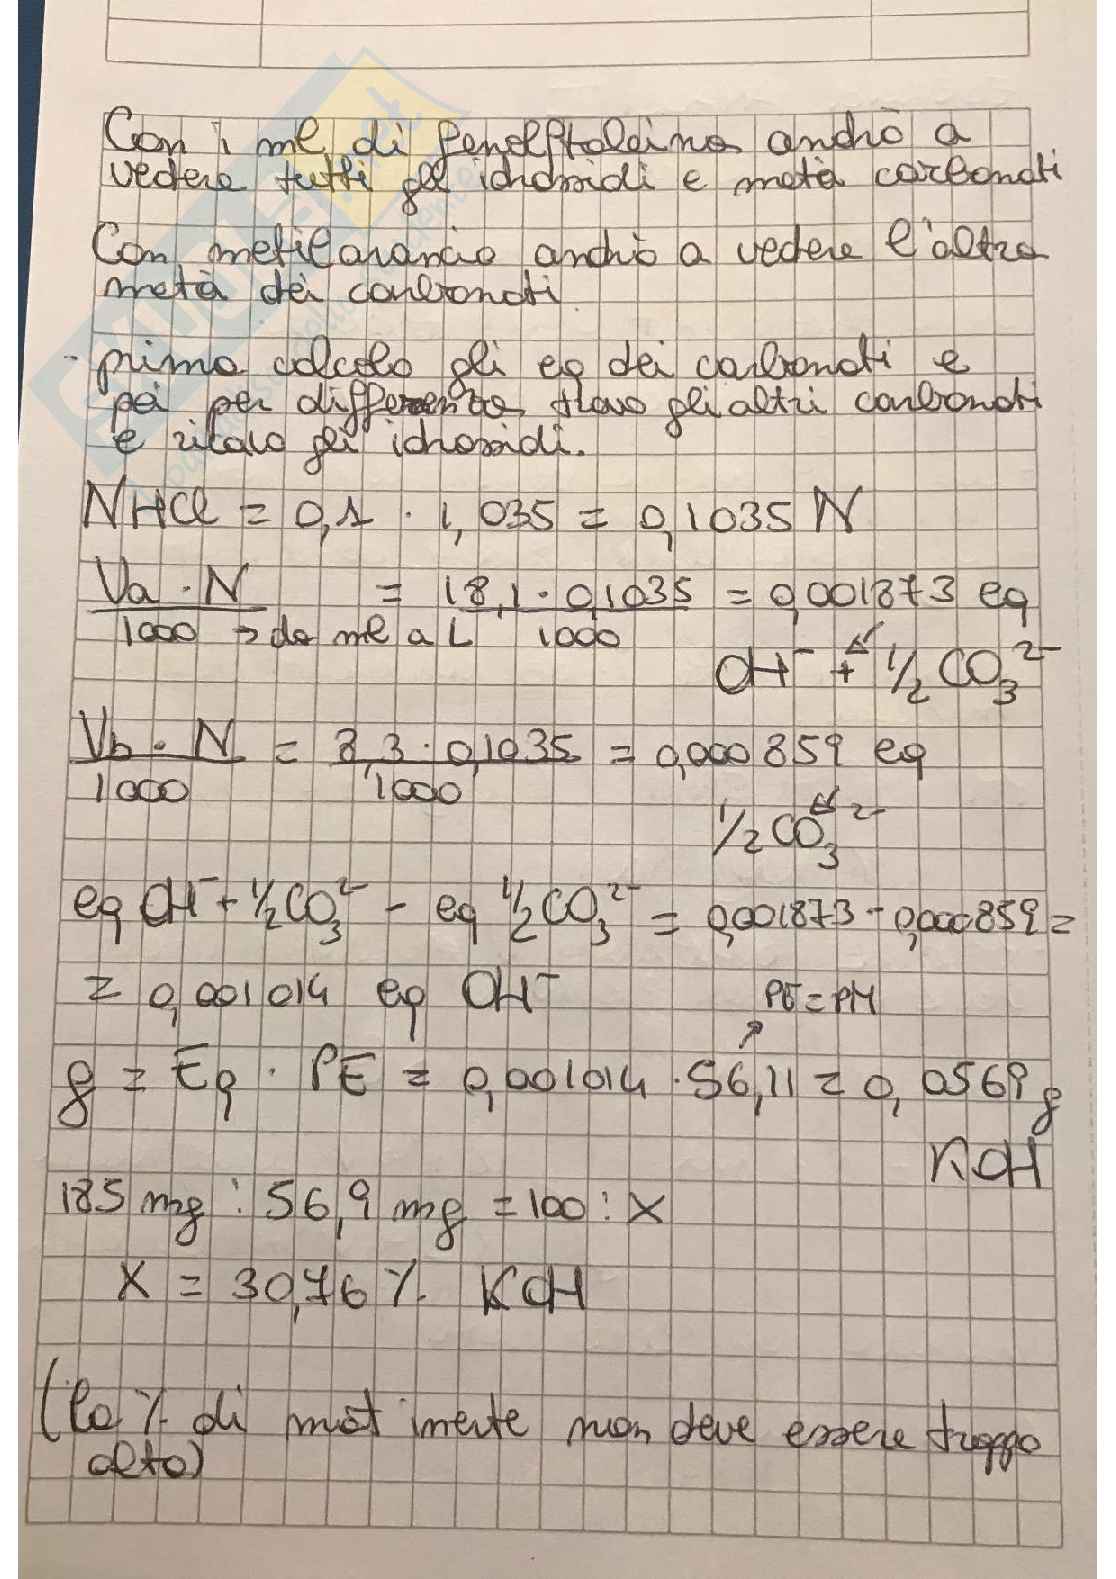 Con i ml di fenolftaleina andrò a
vedere tutti gli idrossidi e metà carbonati
Con metilarancio andrò a vedere l'altra
metà dei carbonati
- prima calcolo gli eq dei carbonati e
poi per differenza trovo gli altri carbonati
e ricavo gli idrossidi.
NHCl = 0,1 · 1,035 = 0,1035 N
Va · N / 1000 → da ml a L = 18,1 · 0,1035 / 1000 = 0,001873 eq
OH⁻ + 1/2 CO₃²⁻
Vb · N / 1000 = 8,3 · 0,1035 / 1000 = 0,000859 eq
1/2 CO₃²⁻
eq OH⁻ + 1/2 CO₃²⁻ - eq 1/2 CO₃²⁻ = 0,001873 - 0,000859 =
= 0,001014 eq OH⁻
PE = PM
g = Eq · PE = 0,001014 · 56,11 = 0,0569 g
KOH
185 mg : 56,9 mg = 100 : X
X = 30,76 % KOH
(la % di mat inerte non deve essere troppo
alta)